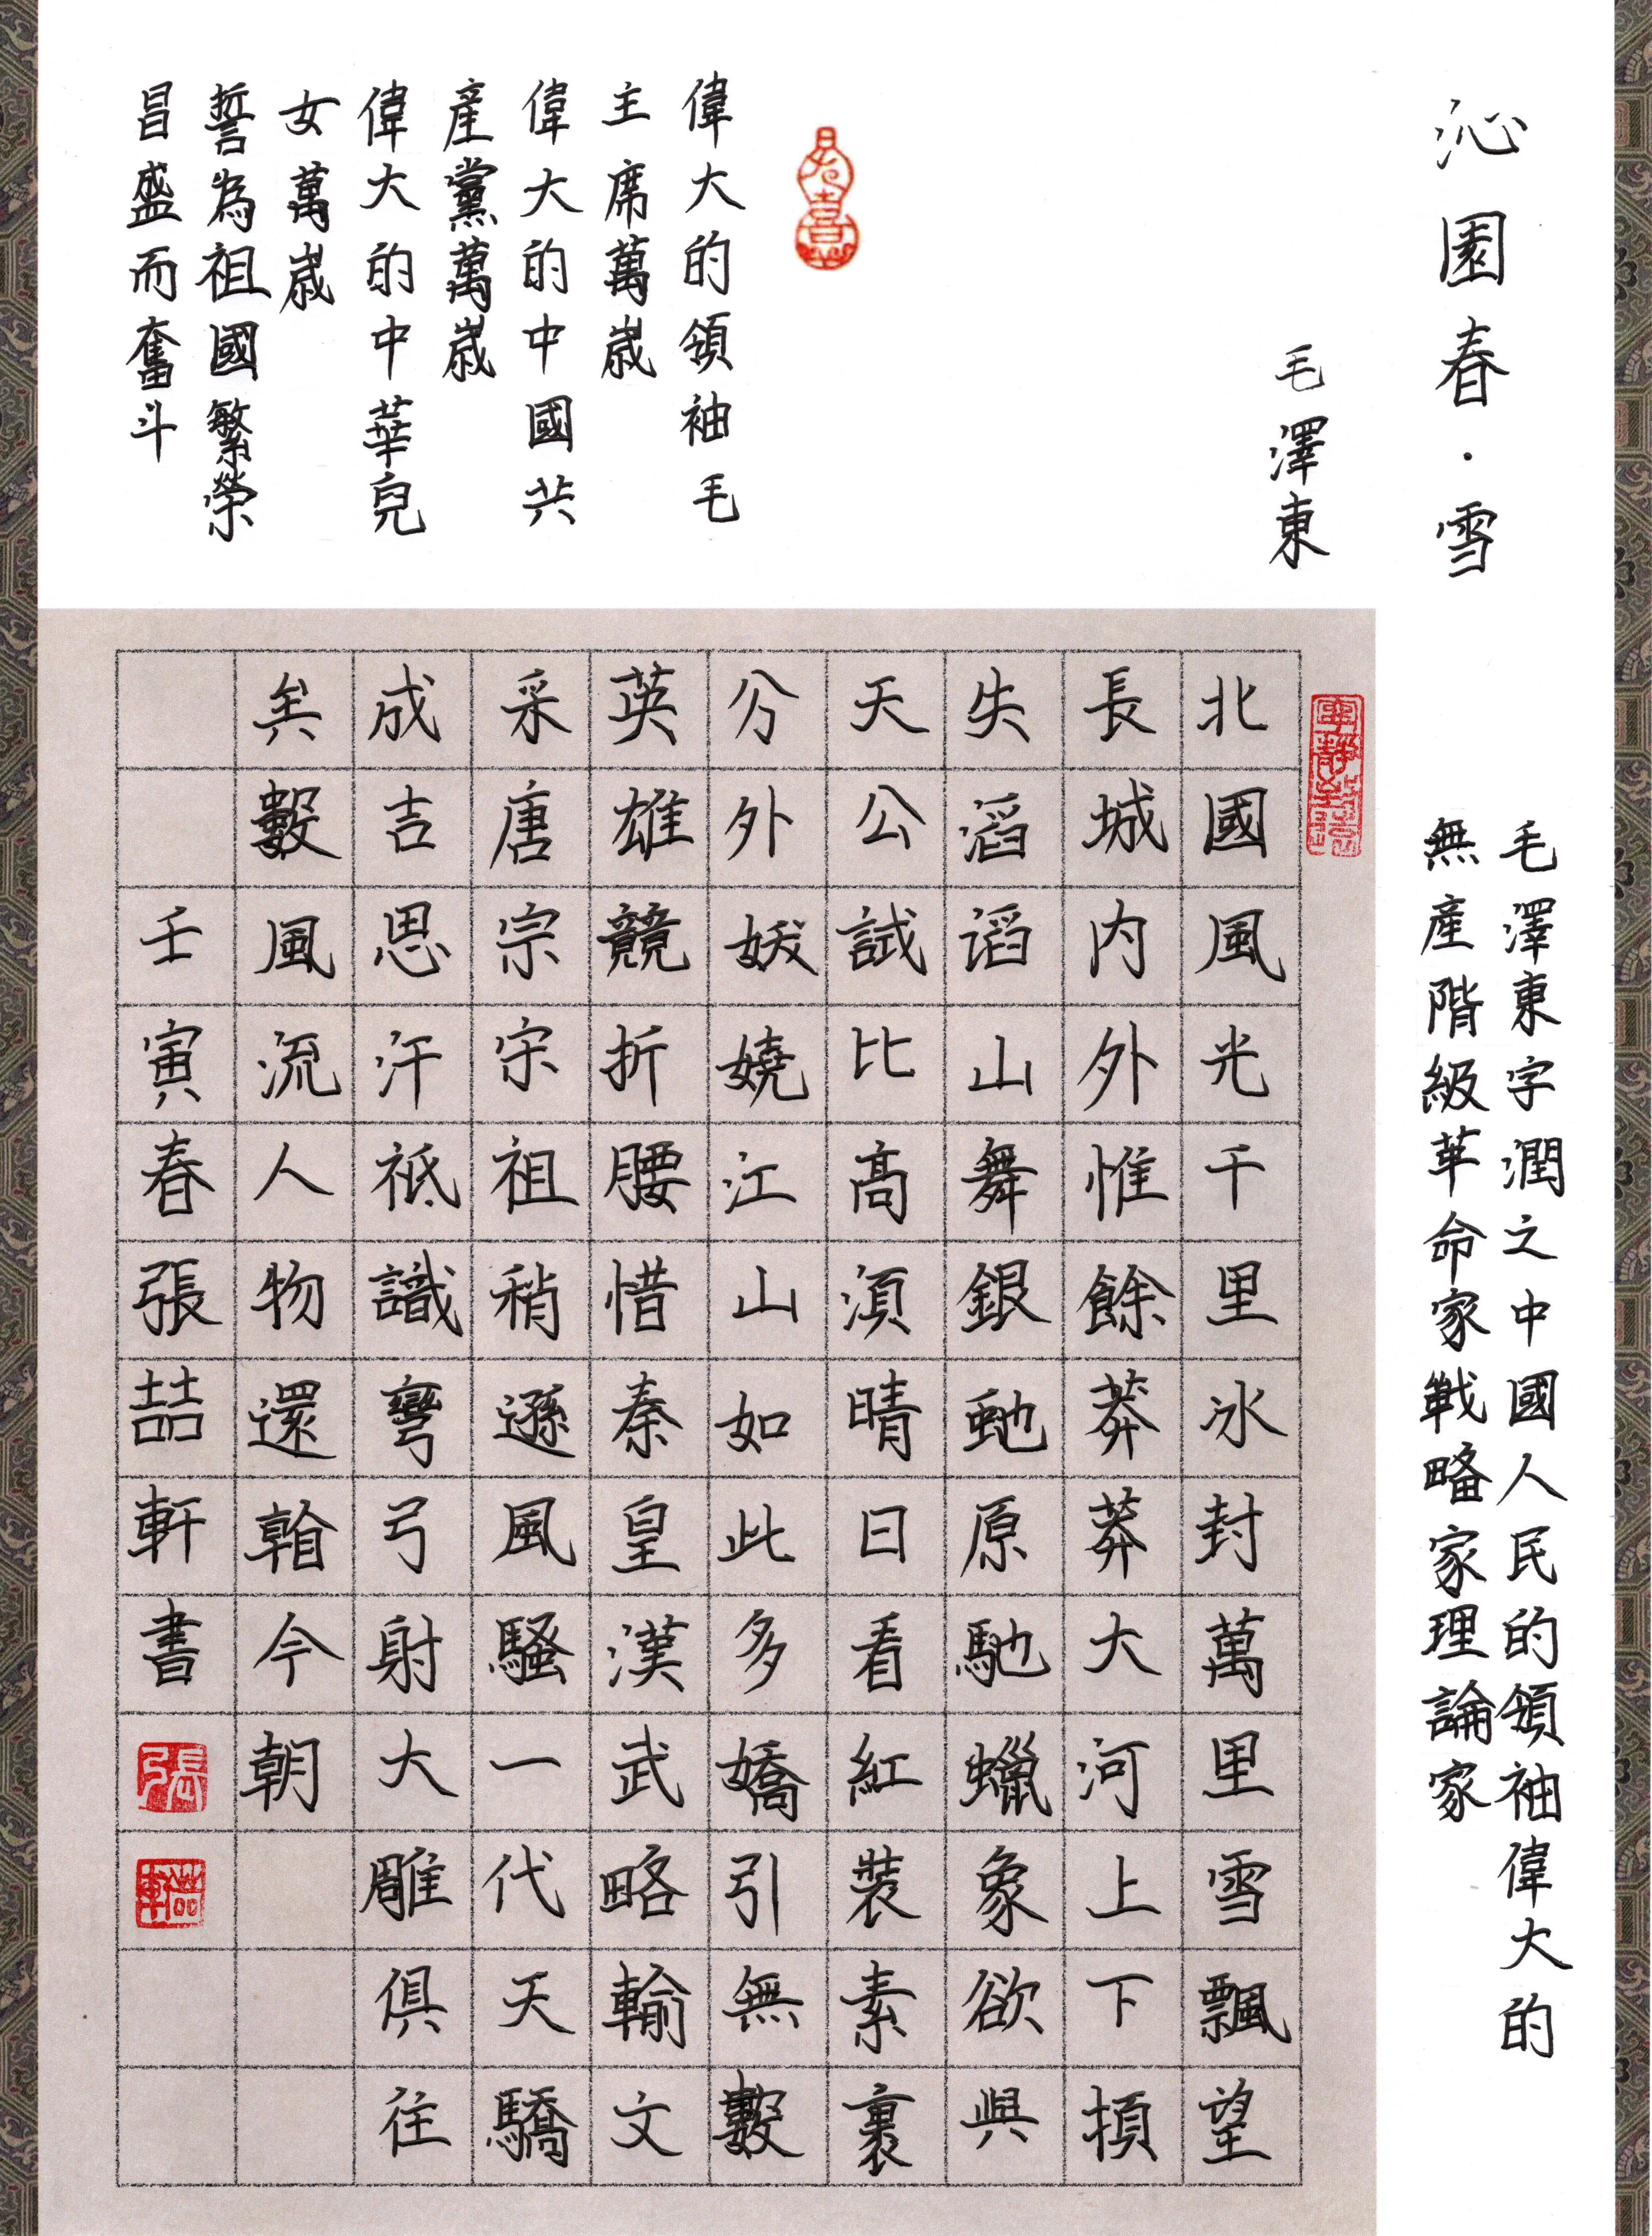 沁園春·雪
毛澤東字潤之中國人民的領袖偉大的
無產階級革命家戰略家理論家
毛澤東
偉大的領袖毛
主席萬歲
偉大的中國共
產黨萬歲
偉大的中華兒
女萬歲
誓為祖國繁榮
昌盛而奮斗
寧靜致遠
北國風光千里冰封萬里雪飄望
長城内外惟餘莽莽大河上下頓
失滔滔山舞銀虵原馳蠟象欲與
天公試比高須晴日看紅裝素裹
分外妖嬈江山如此多嬌引無數
英雄競折腰惜秦皇漢武略輸文
采唐宗宋祖稍遜風騷一代天驕
成吉思汗祗識彎弓射大雕俱往
矣數風流人物還看今朝
壬寅春張喆軒書
張
喆軒